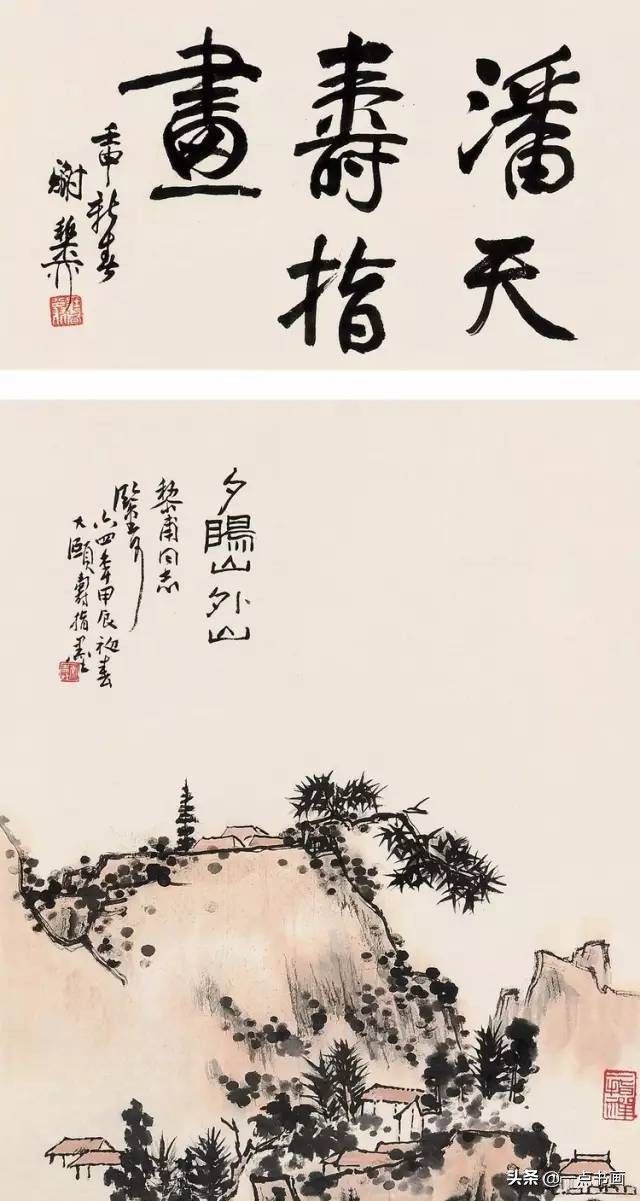 潘天
壽指
畫
壬申新春
謝稚柳
夕暘山外山
黎甫同志
六四年甲辰初春
大頤壽指墨
头条@一点书画